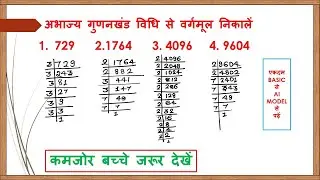 अभाज्य गुणनखंड विधि से वर्गमूल निकालें
1. 729 2.1764 3. 4096 4. 9604
3 729
3 243
3 81
3 27
3 9
3 3
1
2 1764
2 882
3 441
3 147
7 49
7 7
1
2 4096
2 2048
2 1024
2 512
2 256
2 128
2 64
2 32
2 16
2 8
2 4
2 2
1
2 9604
2 4802
7 2401
7 343
7 49
7 7
1
एकदम
BASIC
से
AI
MODEL
से
पढ़ें
कमजोर बच्चे जरूर देखें